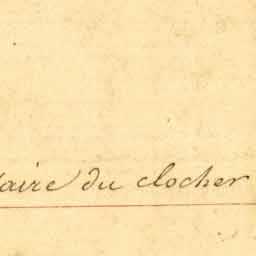 aire du clocher